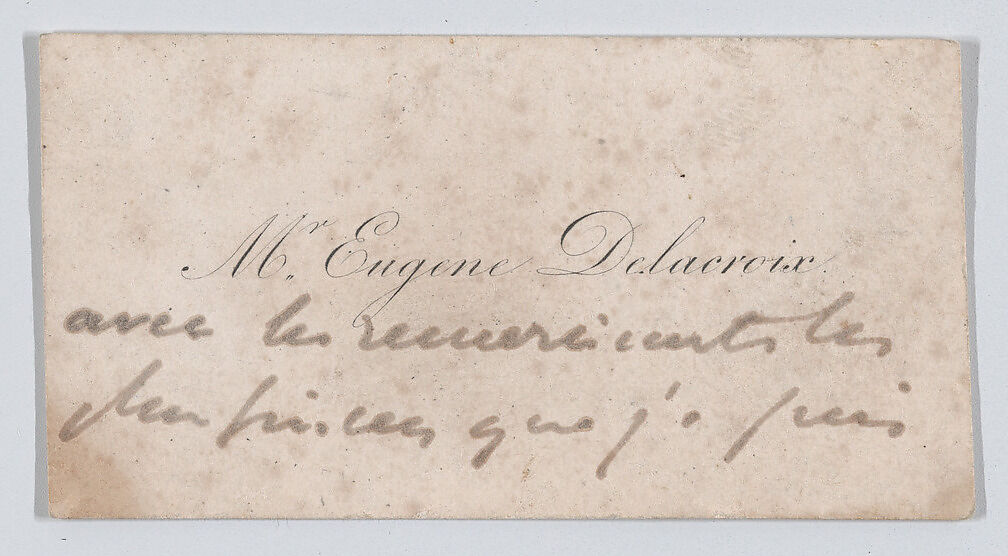 Mr. Eugène Delacroix.
avec les remerciments les
plus sincères que je